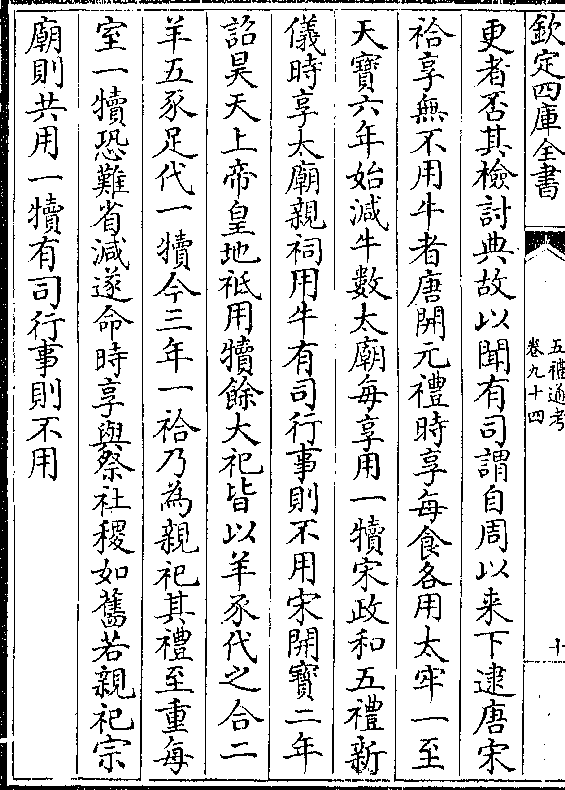 欽定四庫全書
五禮通考
卷九十四
十
更者否其檢討典故以聞有司謂自周以来下逮唐宋
祫享無不用牛者唐開元禮時享每食各用太牢一至
天寶六年始減牛數太廟每享用一犢宋政和五禮新
儀時享太廟親祠用牛有司行事則不用宋開寶二年
詔昊天上帝皇地祗用犢餘大祀皆以羊豕代之合二
羊五豕足代一犢今三年一祫乃為親祀其禮至重每
室一犢恐難省減遂命時享與祭社稷如舊若親祀宗
廟則共用一犢有司行事則不用